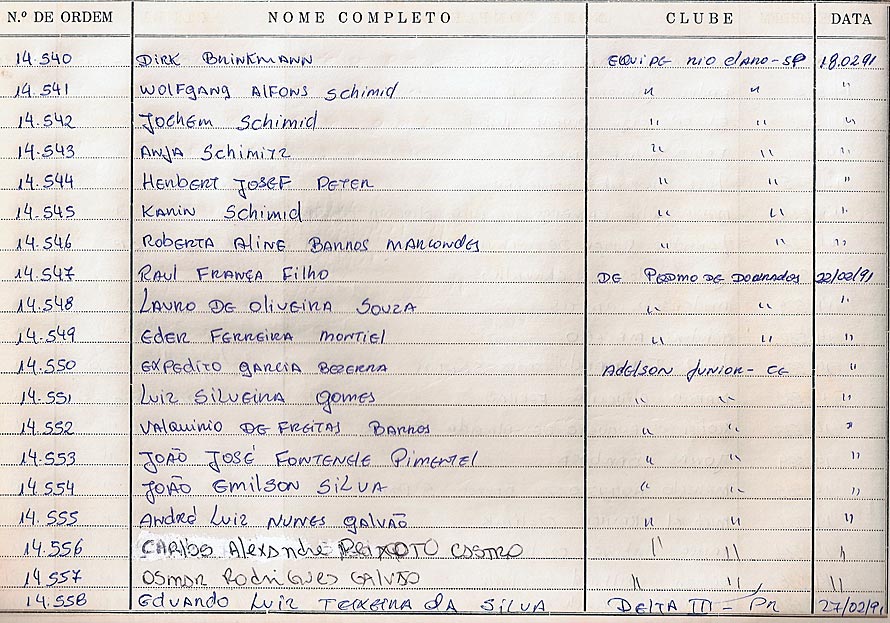 N.º DE ORDEM NOME COMPLETO CLUBE DATA
14.540 DIRK BRINKMANN EQUIPE RIO CLARO-SP 18.02.91
14.541 WOLFGANG ALFONS Schimid " " "
14.542 JOCHEM Schimid " " "
14.543 ANJA Schimitz " " "
14.544 HERBERT JOSEF PETER " " "
14.545 KARIN Schimid " " "
14.546 ROBERTA ALINE BARROS MARCONDES " " "
14.547 RAUL FRANÇA Filho DE PEDRO DE DOURADOS 22/02/91
14.548 LAURO DE OLIVEIRA SOUZA " " "
14.549 EDER FERREIRA MONTIEL " " "
14.550 EXPEDITO GARCIA BEZERRA ADELSON JUNIOR- CE "
14.551 LUIZ SILVEIRA GOMES " " "
14.552 VALQUIRIO DE FREITAS BARROS " " "
14.553 JOÃO JOSÉ FONTENELE PIMENTEL " " "
14.554 JOÃO EMILSON SILVA " " "
14.555 ANDRÉ LUIZ NUNES GALVÃO " " "
14.556 CARLOS Alexandre PEIXOTO CASTRO " " "
14.557 OSMAR RODRIGUES " " "
14.558 EDUARDO LUIZ TEIXEIRA DA SILVA DELTA III - PR 27/02/91